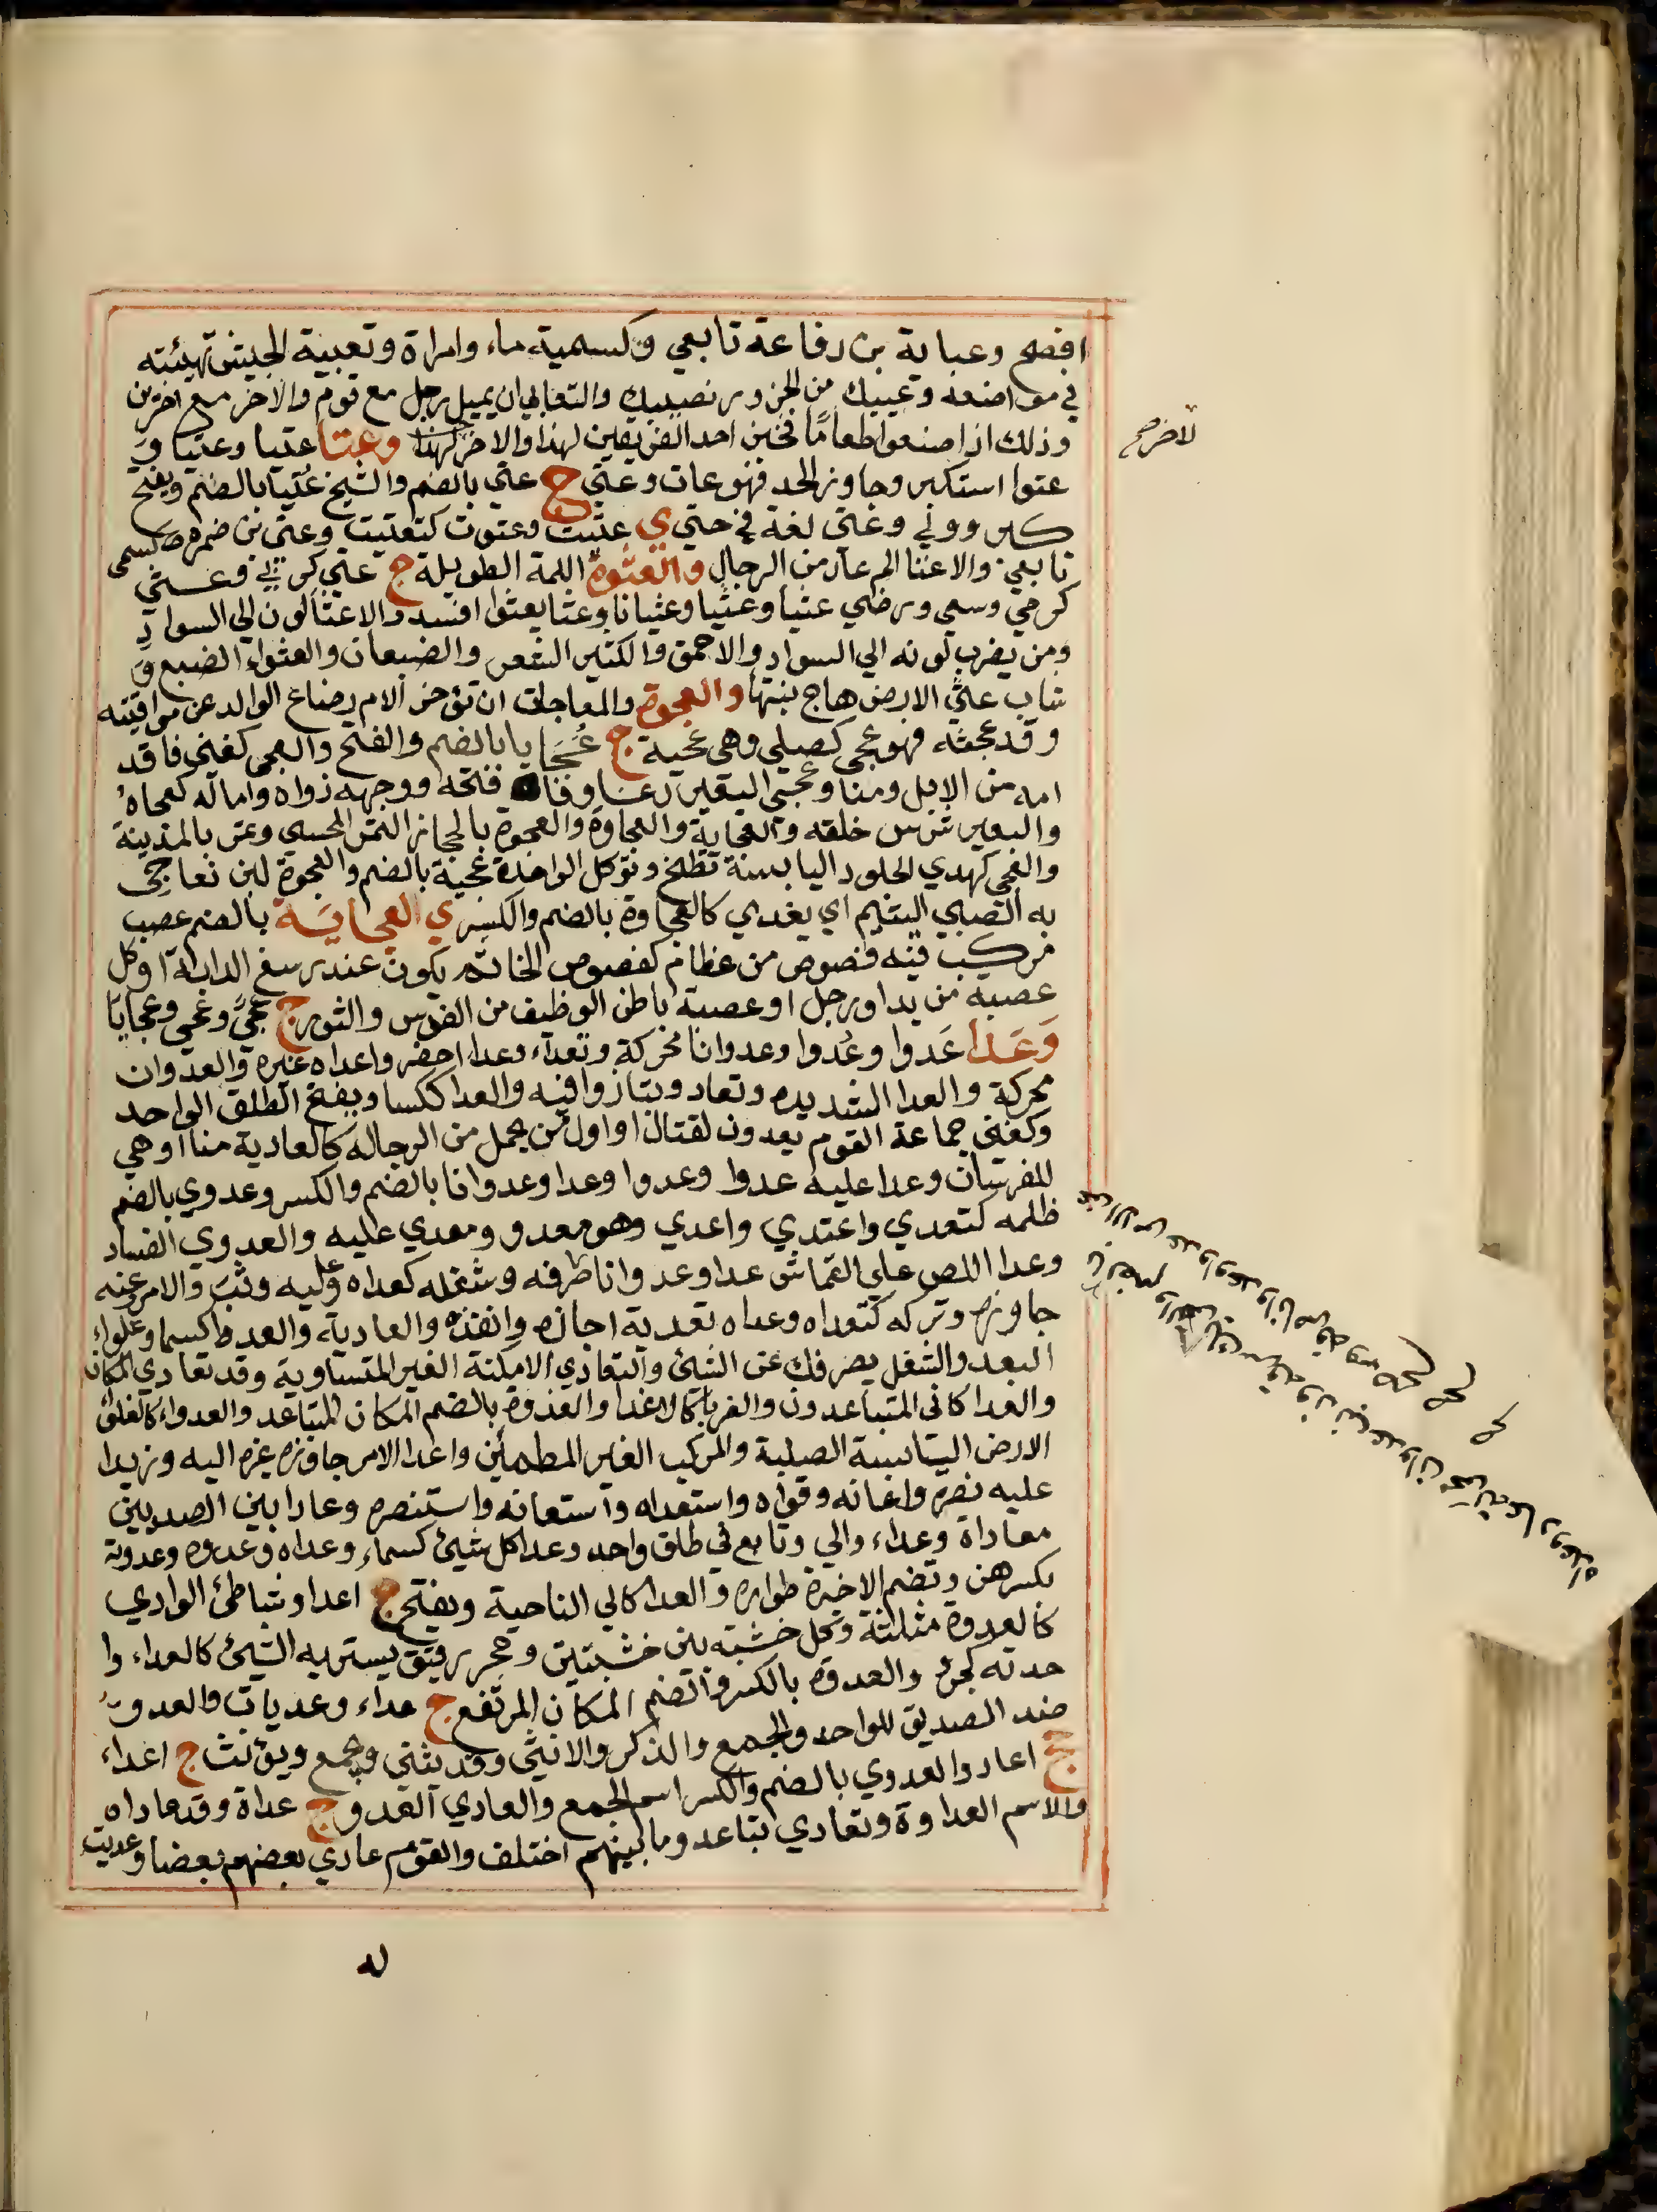 افصح وعباية بن رفاعة تابعي وكسمية ماء وامراة وتعبية الجيش تهيئته
في مواضعه وعبيك من الجزور نصيبك والتعابي ان يميل رجل مع قوم والاخر مع اخرين
وذلك اذا صنعوا طعاما فخبز احد الفريقين لهذا والاخر لهذا وعتا عتيا وعتيا و
عتوا استكبر وجاوز الحد فهو عات وعتي ج عتي بالضم والشيخ عتيا بالضم ويفتح
كبر وولي وعتي لغة في حتي ي عتيت وعتوت كتعتيت وعتي بن ضمرة كسمي
تابعي والاعتا الدعار من الرجال والعثوة اللمة الطويلة ج عثي كربي وعثي
كرمي وسعي ورضي عثيا وعثيا وعثيانا وعثا يعثوا افسد والاعثا لون الي السواد
ومن يضرب لونه الي السواد والاحمق والكثير الشعر والضبعان والعثواء الضبع و
شاب عثي الارض هاج نبتها والعجوة والمعاجاة ان تؤخر الام رضاع الوالد عن مواقيته
وقد عجته فهو عجي كصبلي وهي عجية ج عجايا بالضم والفتح والعجي كغني فاقد
امه من الابل ومنا وعجي البعير رغا وفاه فتحه ووجهه زواه واماله كعجاه
والبعير شرس خلقه والعجاية والعجاوة والعجوة بالحجاز التمر المحسي وتمر بالمدينة
والعجي كهدي الجلود اليابسة تطبخ وتؤكل الواحدة عجية بالضم والعجوة لبن تعاجي
به الصبي اليتيم اي يغدي كالعجاوة بالضم والكسر ي العجاية بالضم عصب
مركب فيه فصوص من عظام كفصوص الخاتم يكون عند رسغ الدابة او كل
عصبة من يد او رجل او عصبة باطن الوظيف من الفرس والثور ج عجي وعجي وعجايا
وعدا عدوا وعدوا وعدوانا محركة وتعداء وعدا احضر واعداه غيره والعدوان
محركة والعدا الشديده وتعادو تباروا فيه والعدا ككسا ويفتح الطلق الواحد
وكغني جماعة القوم يعدون لقتال او اول من يحمل من الرجاله كالعادية منا او هي
للفرسان وعدا عليه عدوا وعدوا وعدا وعدوانا بالضم والكسر وعدوي بالضم
ظلمه كتعدي واعتدي واعدي وهو معدو ومعدي عليه والعدوي الفساد
وعدا اللص علي القماش عدا وعدوانا طرفه وشغله كعداه وعليه وثب والامر وعنه
جاوزه وتركه كتعداه وعداه تعدية اجازه وانفذه والعادية والعدو اكسما وغلواء
البعد والشغل يصرفك عن الشئ والتعادي الامكنة الغير المتساوية وقد تعادي المكان
والعدا كاني المتباعدون والغربا كالاعدا والعدوة بالضم المكان المتباعد والعدواء كالغلوا
الارض اليابسة الصلبة والمركب الغير المطمئن واعدا الامر جاوز غيره اليه وزيدا
عليه نصره واعانه وقواه واستعداه واستعانه واستنصره وعادا بين الصيدين
معاداة وعداء والي وتابع في طلق واحد وعدا كل شيئ كسماء وعداه وعدوه وعدوته
بكسرهن وتضم الاخيرة طواره والعدا كالي الناحية ويفتح ج اعدا وشاطئ الوادي
كالعدوة مثلثة وكل خشبة بين خشبتين وحجر رقيق يستر به الشيئ كالعداء وا
حدته كجرو والعدوة بالكسر والضم المكان المرتفع ج عداء وعديات والعدو
ضد الصديق للواحد والجمع والذكر والانثي وقد يثني ويجمع ويؤنث ج اعداء
جج اعاد والعدوي بالضم والكسر اسم الجمع والعادي العدو ج عداة وقد عاداه
والاسم العداوة وتعادي تباعد وما بينهم اختلف والقوم عادي بعضهم بعضا وعديت
له
لاخر صح